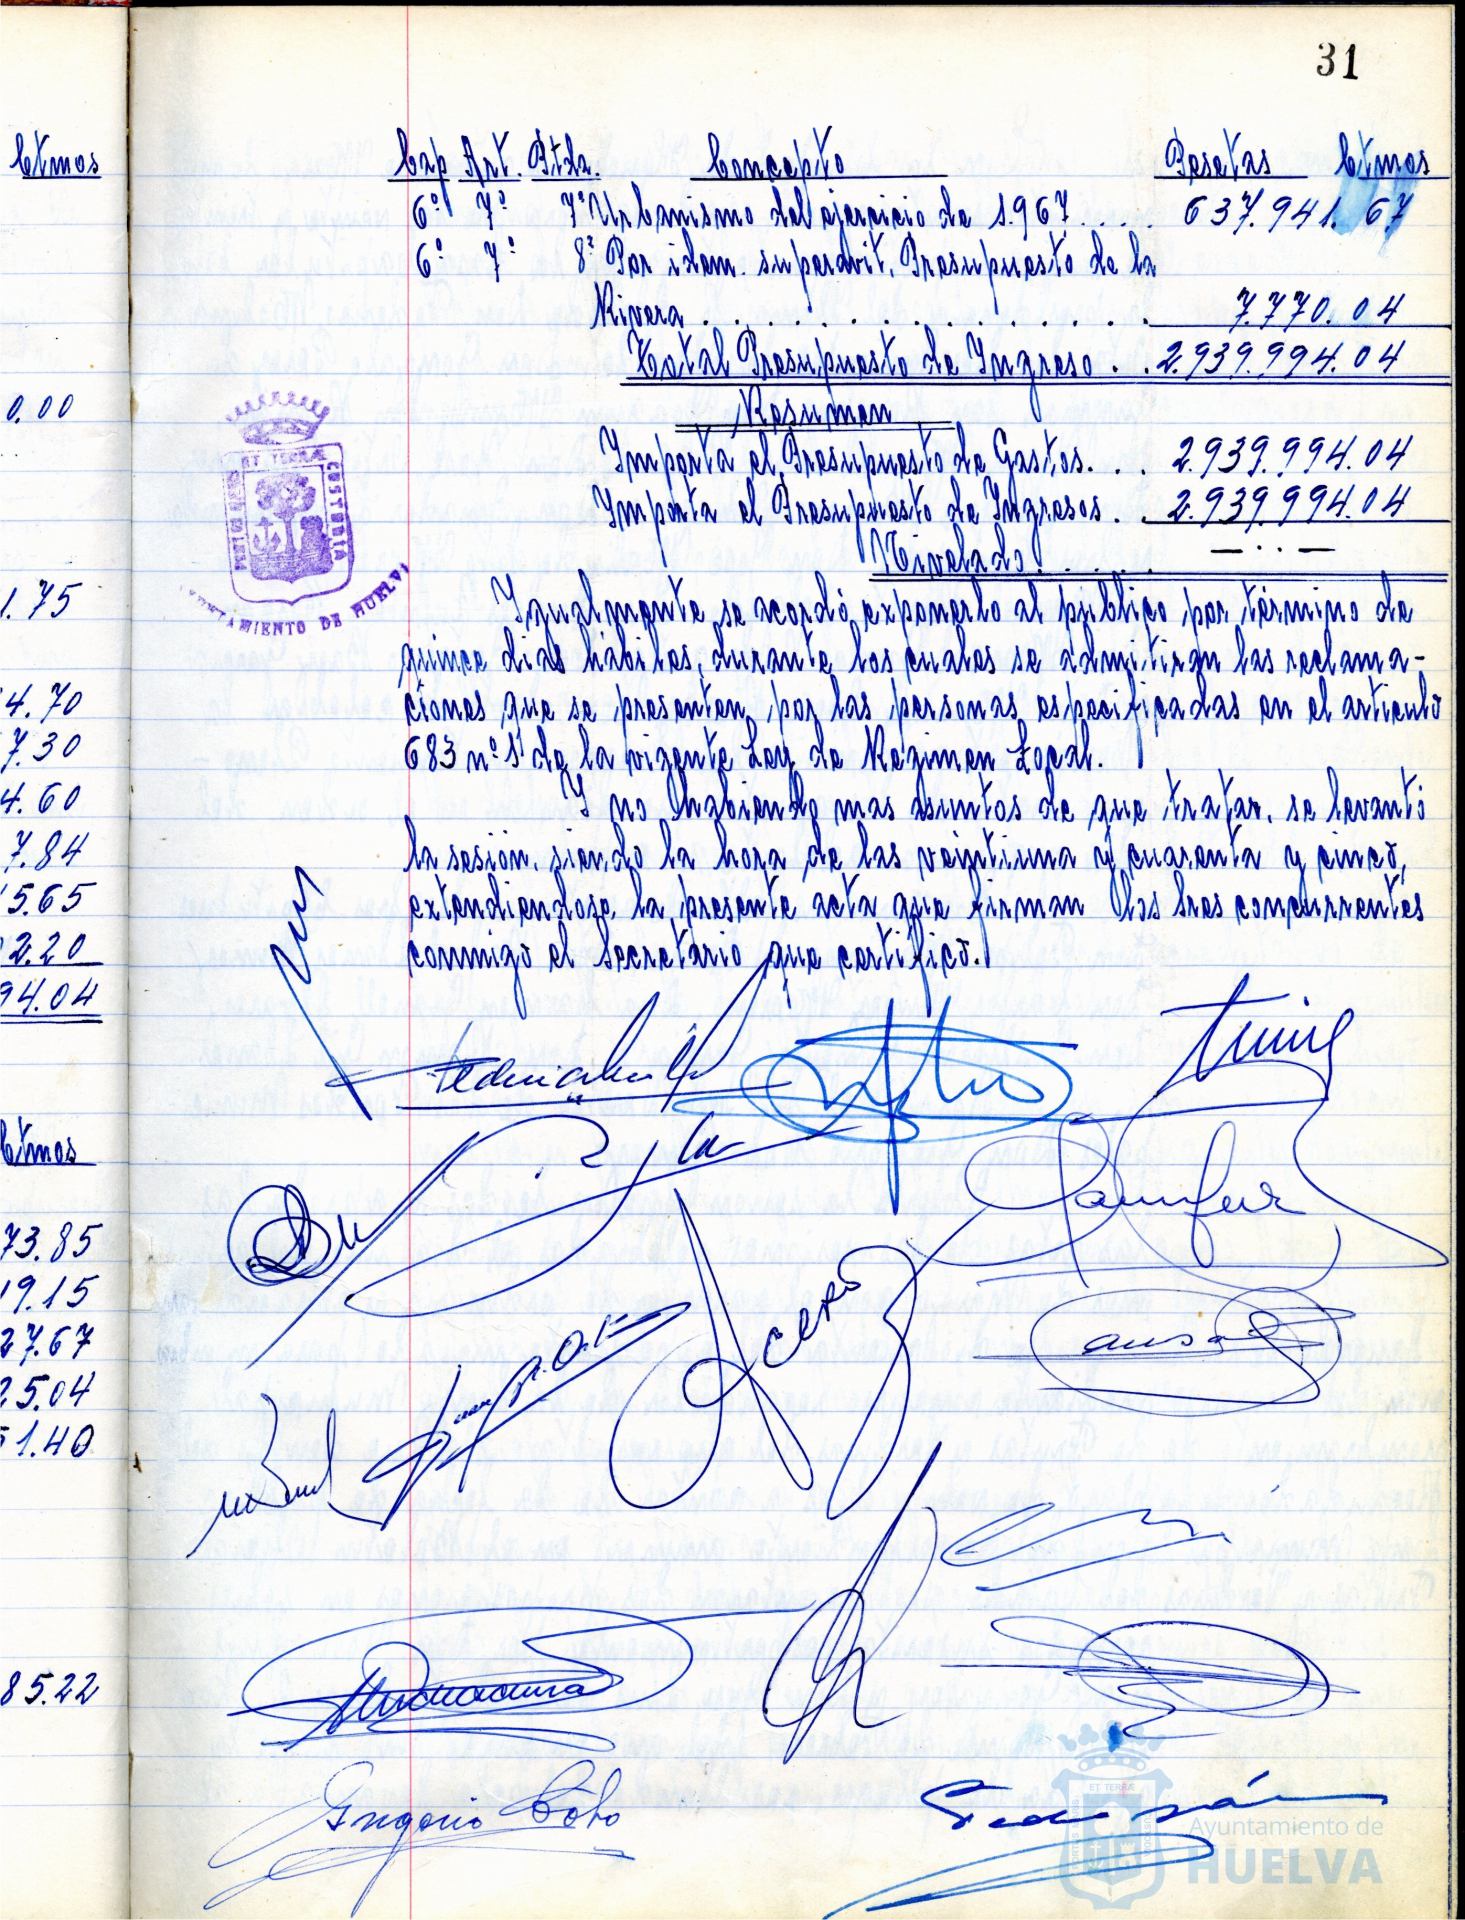 31
Ctmos
0.00
1.75
4.70
7.30
4.60
7.84
5.65
2.20
94.04
Ctmos
73.85
19.15
27.67
25.04
51.40
85.22
Cap Art. Ptda. Concepto Pesetas Ctmos
6º 7º 7º Urbanismo del ejercicio de 1.967 .... 637.941.67
6º 7º 8º Por idem. superavit. Presupuesto de la
Rivera . . . . . . . . . . . . . . 7.770.04
Total Presupuesto de Ingreso . . 2.939.994.04
Resumen
Importa el Presupuesto de Gastos. . . 2.939.994.04
Importa el Presupuesto de Ingresos . . 2.939.994.04
Nivelado . . . . . — . . —
Igualmente se acordó exponerlo al público por término de
quince dias habiles, durante los cuales se admitiran las reclama-
ciones que se presenten por las personas especificadas en el articulo
683 nº 1 de la vigente Ley de Regimen Local.
Y no habiendo mas asuntos de que tratar, se levantó
la sesión, siendo la hora de las veintiuna y cuarenta y cinco,
extendiendose la presente acta que firman los Sres concurrentes
conmigo el Secretario que certifico.
ET TERRÆ CUSTODIA
AYUNTAMIENTO DE HUELVA
Gregorio Cobo
ET TERRÆ
Ayuntamiento de
HUELVA